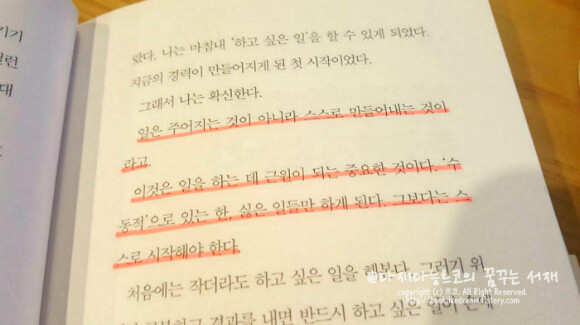 왔다. 나는 마침내 '하고 싶은 일'을 할 수 있게 되었다.
지금의 경력이 만들어지게 된 첫 시작이었다.
그래서 나는 확신한다.
일은 주어지는 것이 아니라 스스로 만들어내는 것이
라고.
이것은 일을 하는 데 근원이 되는 중요한 것이다. '수
동적'으로 있는 한, 싫은 일들만 하게 된다. 그보다는 스
스로 시작해야 한다.
처음에는 작더라도 하고 싶은 일을 해본다. 그러기 위
결과를 내면 반드시 하고 싶은 일이
기기
대
꿈꾸는 서재
copyright (c) 르코. All Right Reserved.